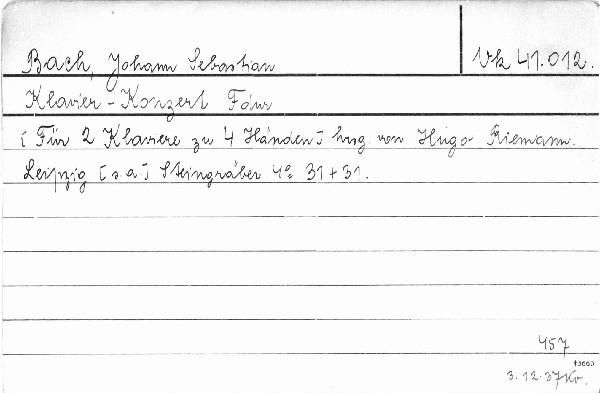 Bach, Johann Sebastian
Vk 41.012.
Klavier-Konzert Fdur
[ Für 2 Klaviere zu 4 Händen ] hrsg. von Hugo Riemann.
Leipzig [s.a.] Steingräber 4° 31 + 31.
457
3. 12. 37 Kv.